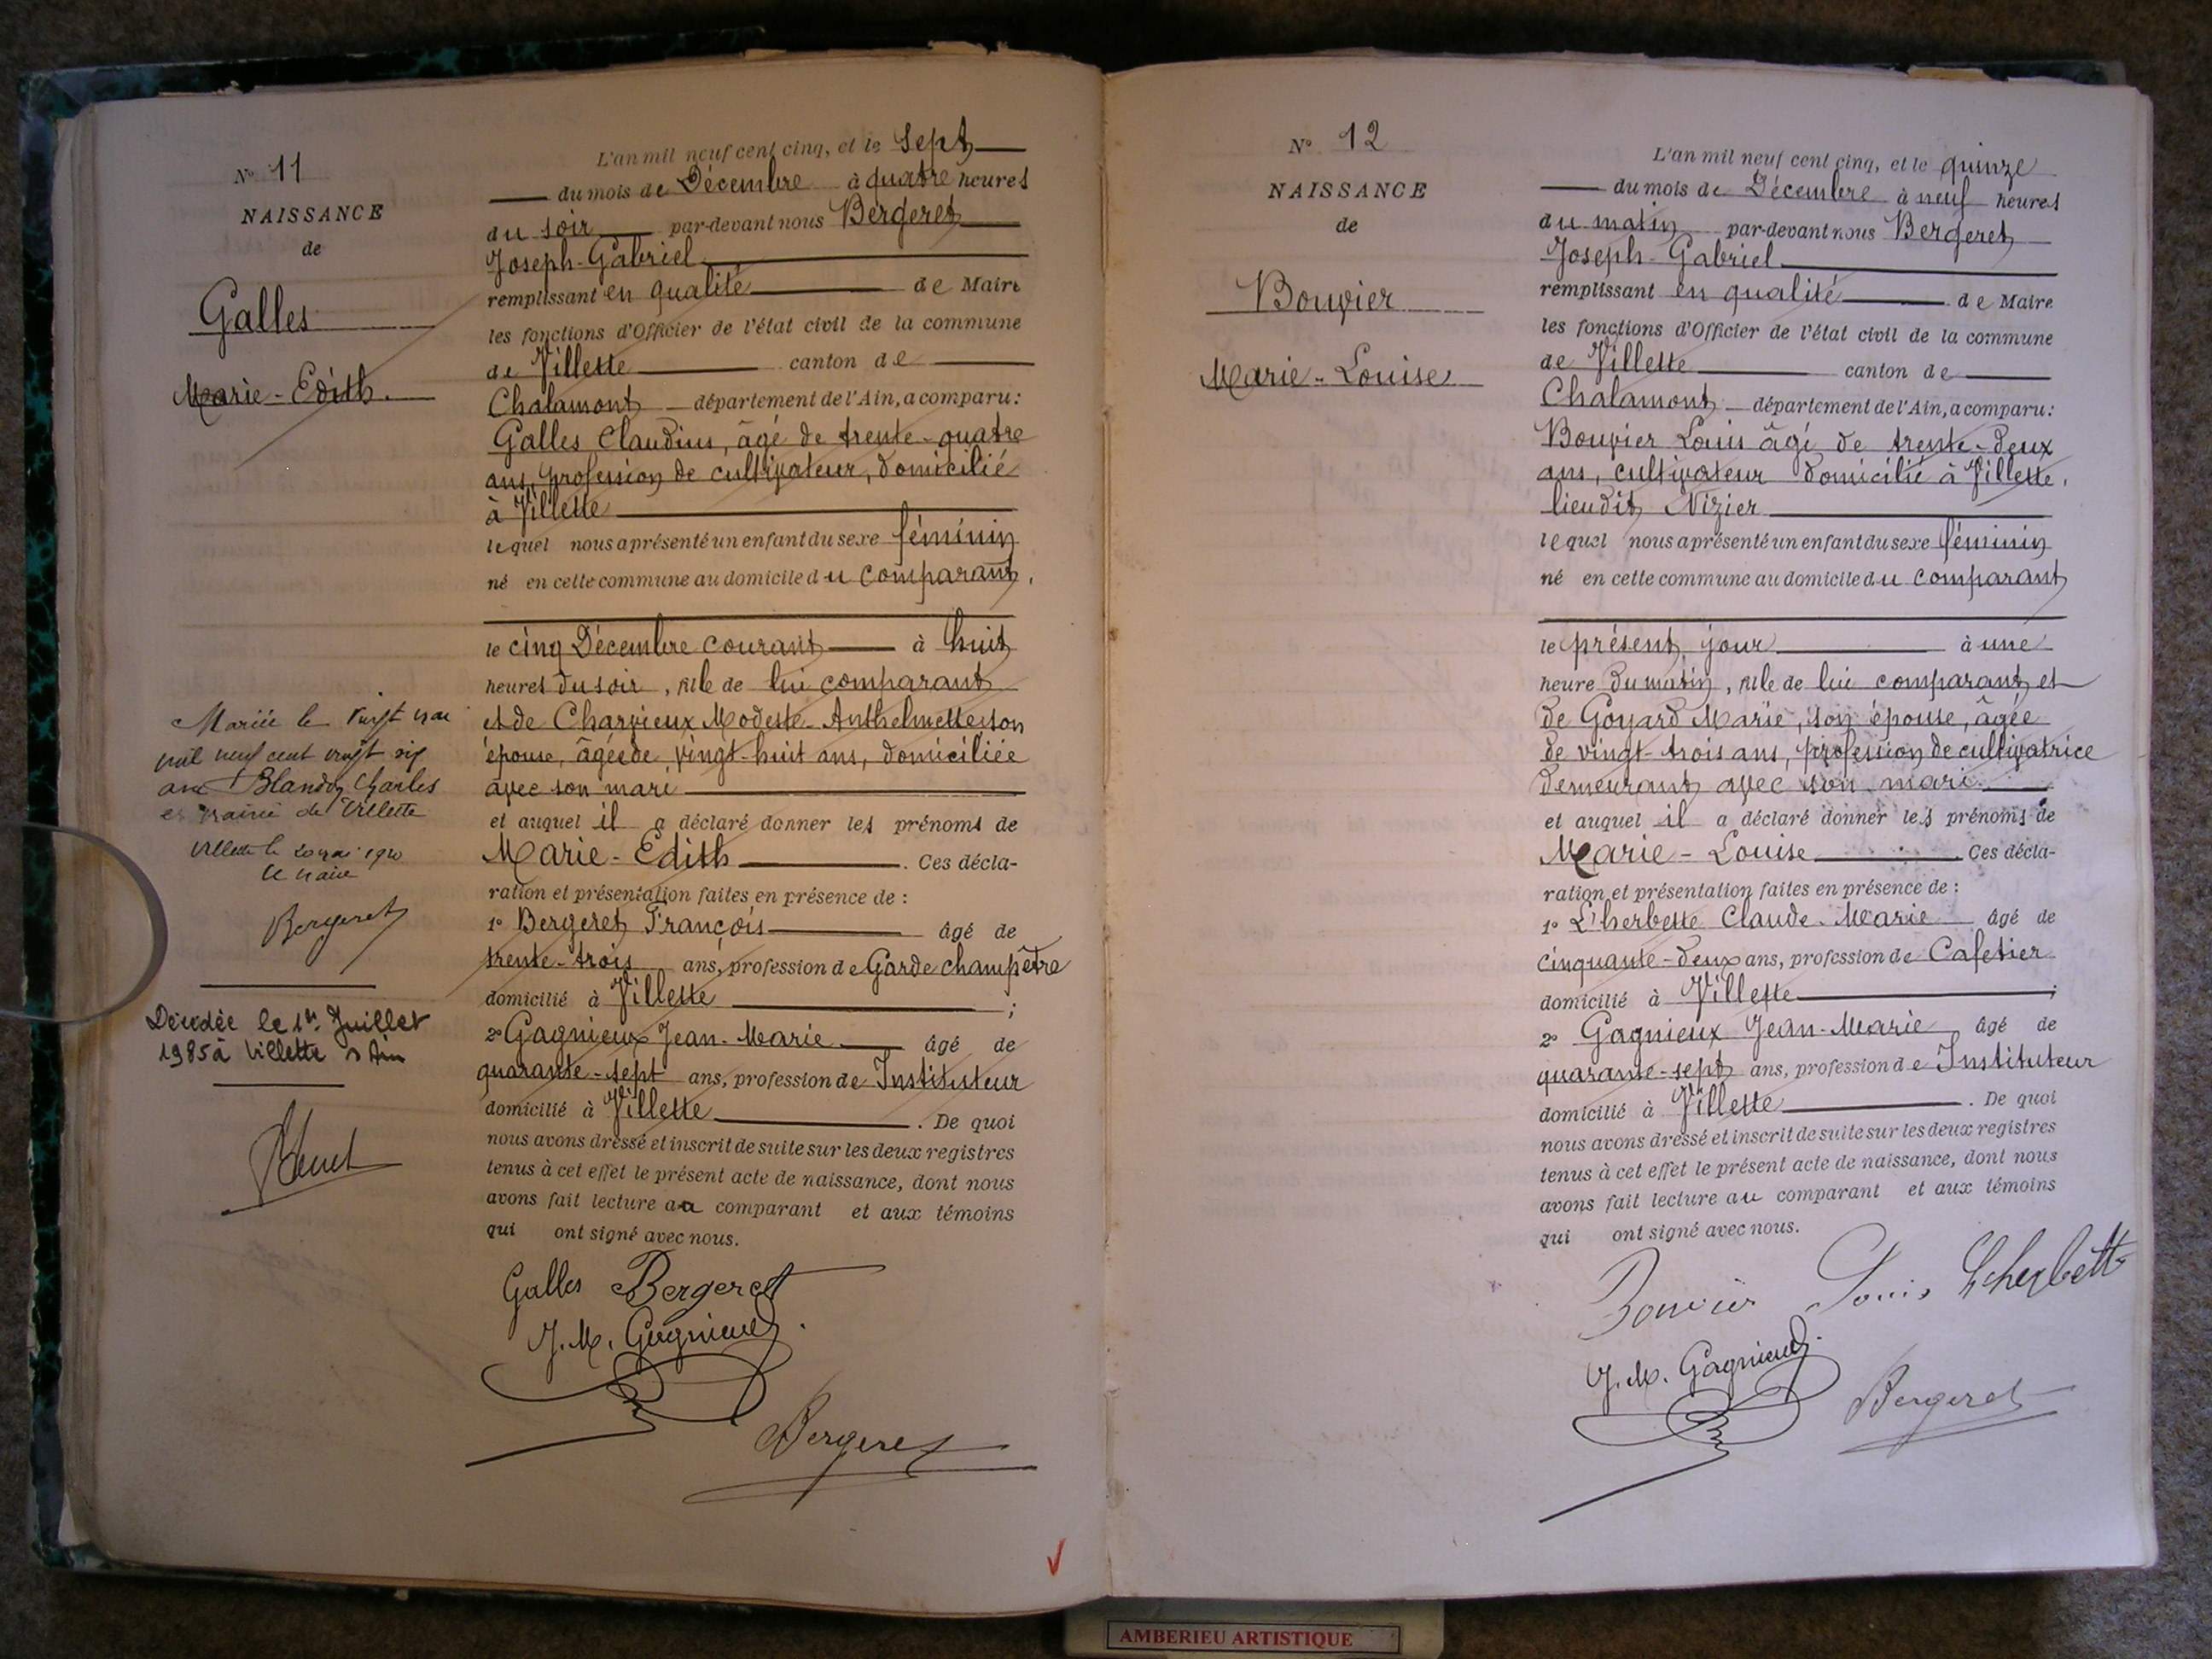 N° 11
NAISSANCE
de
Galles
Marie-Edith.
Mariée le vingt mai
mil neuf cent vingt six
avec Blandon Charles
mairie de Villette
Villette le 20 mai
le maire
Bergeret
Décédée le 1er Juillet
1985 à Villette s Ain
L'an mil neuf cent cinq, et le sept
du mois de Décembre à quatre heures
du soir par-devant nous Bergeret
Joseph-Gabriel
remplissant en qualité de Maire
les fonctions d'Officier de l'état civil de la commune
de Villette canton de
Chalamont département de l'Ain, a comparu:
Galles Claudius, âgé de trente-quatre
ans, profession de cultivateur, domicilié
à Villette
lequel nous a présenté un enfant du sexe féminin
né en cette commune au domicile du comparant,
le cinq Décembre courant à huit
heures du soir, fille de lui comparant
et de Charvieux Modeste-Anthelmette son
épouse, âgée de vingt-huit ans, domiciliée
avec son mari
et auquel il a déclaré donner les prénoms de
Marie-Edith. Ces décla-
ration et présentation faites en présence de :
1° Bergeret François âgé de
trente-trois ans, profession de Garde champêtre
domicilié à Villette ;
2° Gagnieux Jean-Marie âgé de
quarante-sept ans, profession de Instituteur
domicilié à Villette. De quoi
nous avons dressé et inscrit de suite sur les deux registres
tenus à cet effet le présent acte de naissance, dont nous
avons fait lecture au comparant et aux témoins
qui ont signé avec nous.
Galles Bergeret
J. M. Gagnieux.
Bergeret
N° 12
NAISSANCE
de
Bouvier
Marie-Louise
L'an mil neuf cent cinq, et le quinze
du mois de Décembre à neuf heures
du matin par-devant nous Bergeret
Joseph-Gabriel
remplissant en qualité de Maire
les fonctions d'Officier de l'état civil de la commune
de Villette canton de
Chalamont département de l'Ain, a comparu:
Bouvier Louis âgé de trente-deux
ans, cultivateur domicilié à Villette,
lieudit Nizier
lequel nous a présenté un enfant du sexe féminin
né en cette commune au domicile du comparant
le présent jour à une
heure du matin, fille de lui comparant et
de Goyard Marie, son épouse, âgée
de vingt-trois ans, profession de cultivatrice
demeurant avec son mari.
et auquel il a déclaré donner les prénoms de
Marie-Louise. Ces décla-
ration et présentation faites en présence de :
1° L'herbette Claude-Marie âgé de
cinquante-deux ans, profession de Cafetier
domicilié à Villette ;
2° Gagnieux Jean-Marie âgé de
quarante-sept ans, profession de Instituteur
domicilié à Villette. De quoi
nous avons dressé et inscrit de suite sur les deux registres
tenus à cet effet le présent acte de naissance, dont nous
avons fait lecture au comparant et aux témoins
qui ont signé avec nous.
Bouvier Louis Lherbette
J. M. Gagnieux.
Bergeret
AMBERIEU ARTISTIQUE